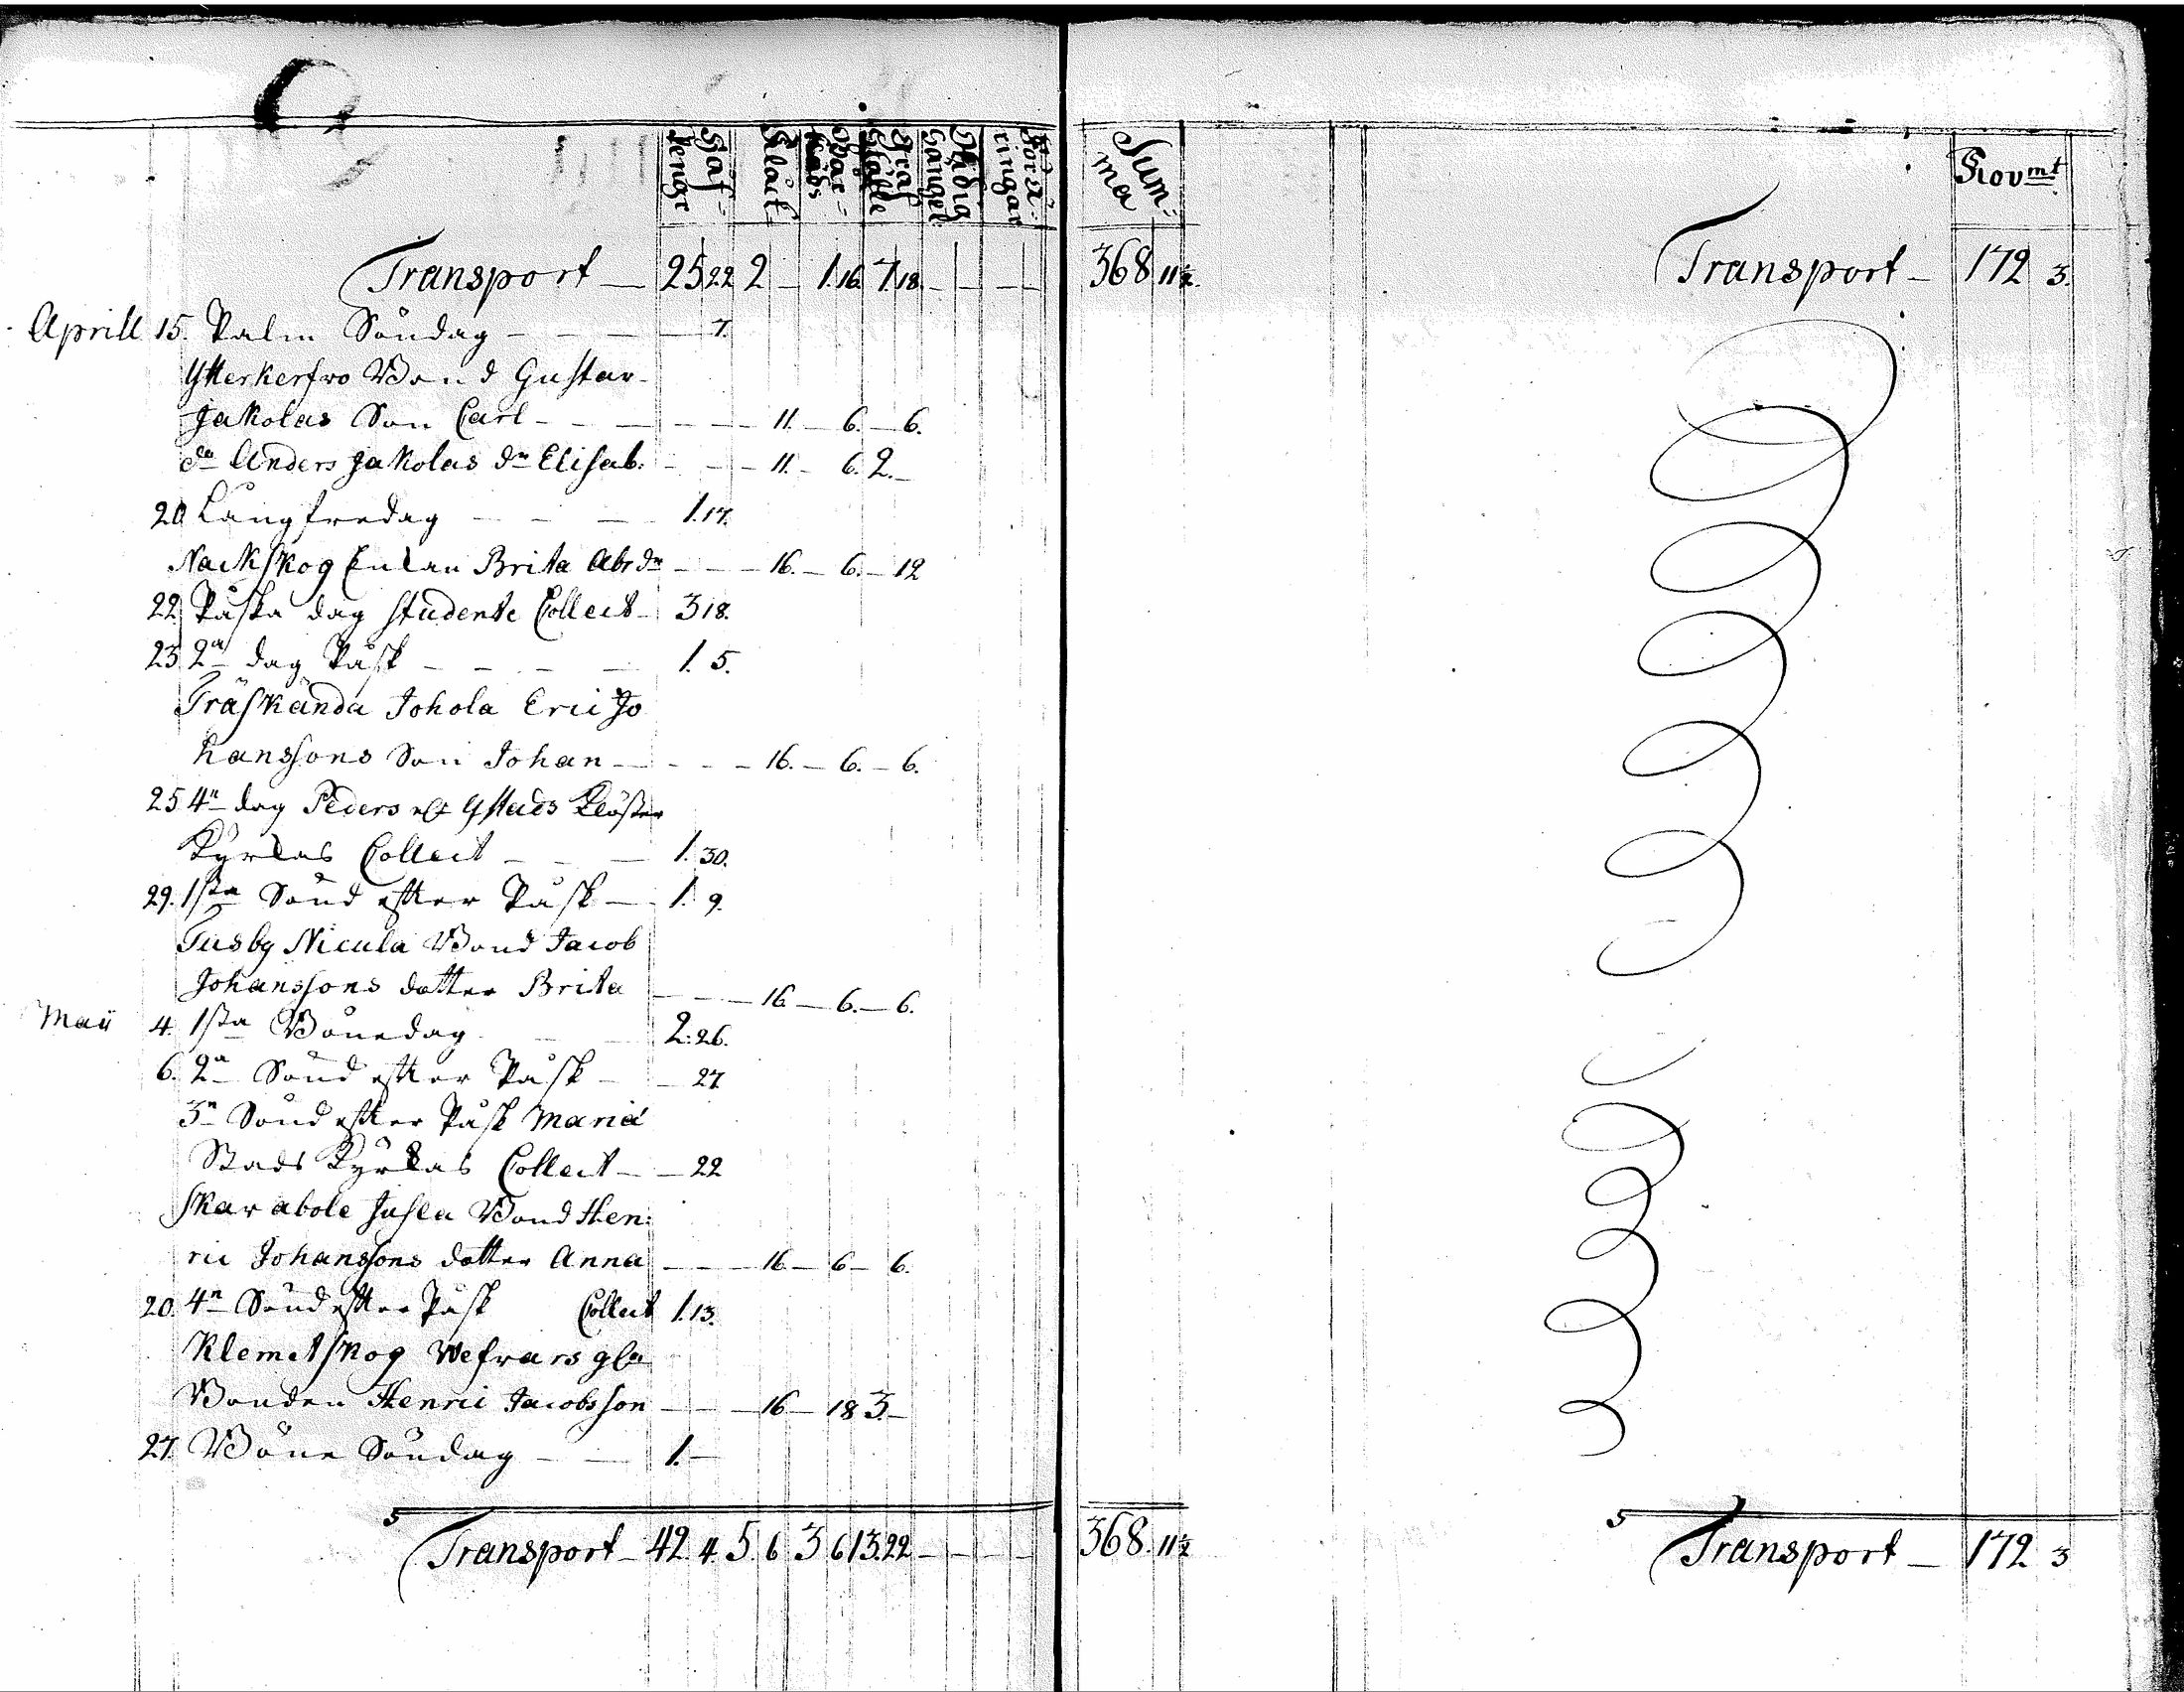 Håf- Penge
Klåck
Wax- Kåds
Graf Ställe
Städig Gångel
Föräringar
Summa
Provmt
Transport — 25 22 2 — 1. 16. 7. 18. — — — — 368 11½.
Transport — 172 3.
Aprill 15. Palm Söndag — — — — 7.
Ytterkerfwo Bond Gustav
Jakolas Son Carl — — — — 11. — 6. — 6.
do Anders Jakolas dr Elisab: — — — 11. — 6. 2. —
20 Långfredag — — — 1. 17.
Nackskog Enkan Brita Abr dr — — — 16. — 6. — 12
22. Påska dag studente Collect — 3 18.
23. 2a dag Påsk — — — — 1. 5.
Träskända Johola Eric Jo
hanssons Son Johan — — — — 16. — 6. — 6.
25 4e dag Peders och Ystads Klöster
Kyrkas Collect — — — 1. 30.
29. 1sta Sönd efter Påsk — 1. 9.
Tusby Nicula Bond Jacob
Johanssons dotter Brita — — — 16 — 6. — 6.
Maii 4. 1sta Bönedag — — 2. 26.
6. 2a Sönd efter Påsk — — 27
3e Sönd efter Påsk Mariæ
Stads Kyrkas Collect — — 22
Skarabole Jusla Bond Hen:
ric Johanssons dotter Anna — — — 16 — 6 — 6.
20. 4e Sönd efter Påsk Collect 1. 13.
Klemetskog Wefvars gla
Bonden Henric Jacobsson — — — 16 — 18 3. —
27. Böne Söndag — — 1. —
Transport — 42. 4. 5. 6. 3 6 13. 22 — — — — 368. 11½
Transport — 172 3